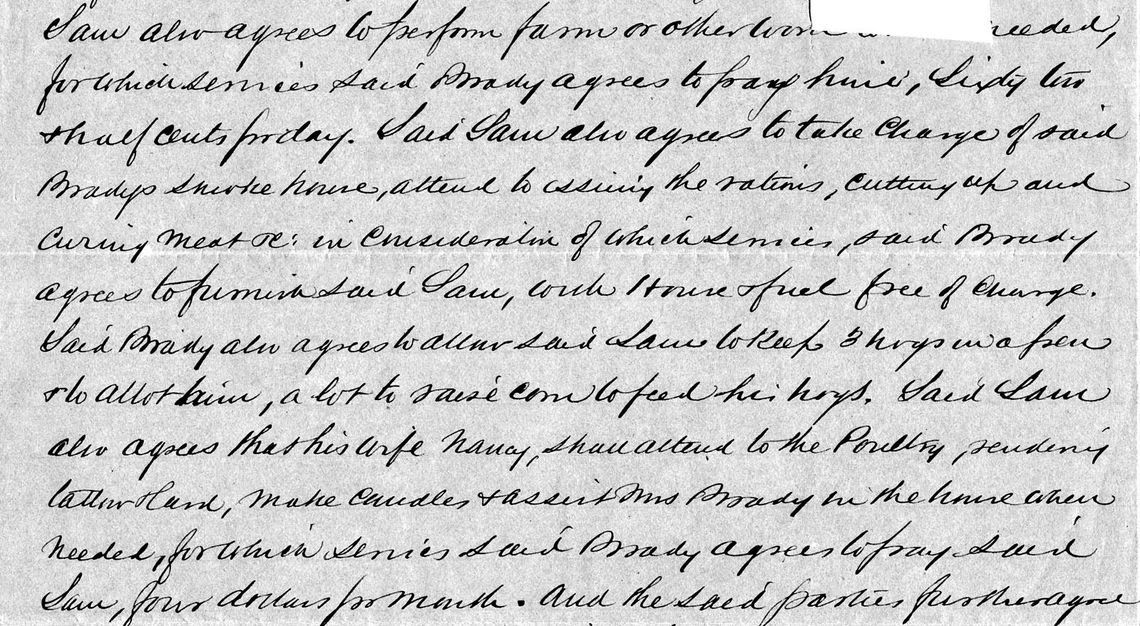 Sam also agrees to perform farm or other work needed,
for which services said Brady agrees to pay him, Sixty two
& half cents pr day. Said Sam also agrees to take Charge of said
Bradys smoke house, attend to issuing the rations, cutting up and
Curing Meat &c: in Consideration of which services, said Brady
agrees to furnish said Sam, with House & fuel free of Charge.
Said Brady also agrees to allow said Sam to Keep 3 hogs in a pen
& to allot him, a lot to raise corn to feed his hogs. Said Sam
also agrees that his wife Nancy, shall attend to the Poultry, rendering
tallow & Lard, make Candles & assist Mrs Brady in the house when
needed, for which services said Brady agrees to pay said
Sam, four dollars pr month. And the said parties further agree